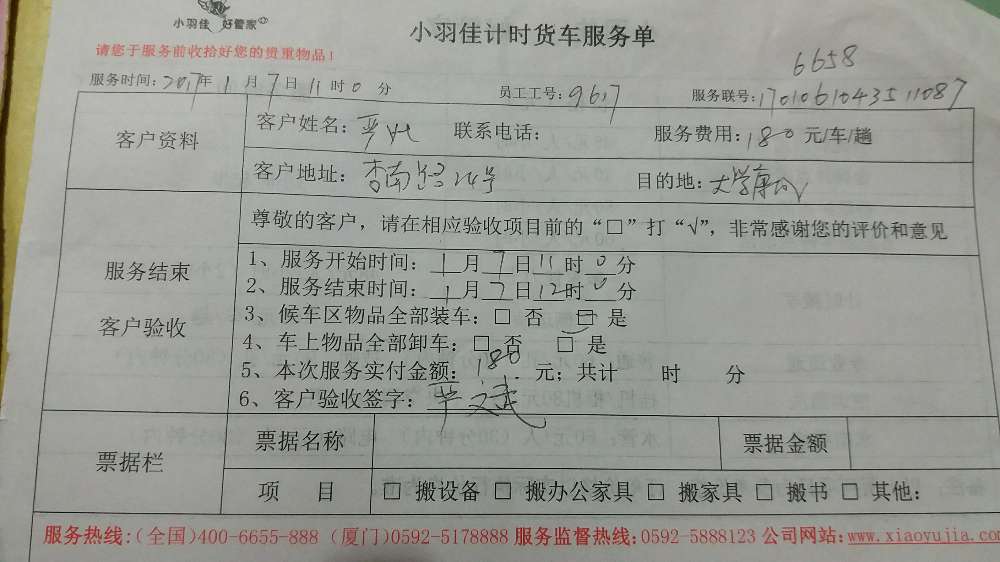 小羽佳 好管家
小羽佳计时货车服务单
请您于服务前收拾好您的贵重物品!
6658
服务时间: 2017年 1 月 7 日 11 时 0 分 员工工号: 9617 服务联号: 1701061043511087
客户资料
客户姓名: 联系电话: 服务费用: 180 元/车/趟
客户地址: 杏南路24号 目的地: 大学康城
服务结束
客户验收
尊敬的客户，请在相应验收项目前的“□”打“√”，非常感谢您的评价和意见
1、服务开始时间: 1 月 7 日 11 时 0 分
2、服务结束时间: 1 月 7 日 12 时 0 分
3、候车区物品全部装车: □ 否 □ 是
4、车上物品全部卸车: □ 否 □ 是
5、本次服务实付金额: 180 元; 共计 时 分
6、客户验收签字: 严文武
票据栏
票据名称 票据金额
项 目 □ 搬设备 □ 搬办公家具 □ 搬家具 □ 搬书 □ 其他:
服务热线:(全国)400-6655-888 (厦门)0592-5178888 服务监督热线:0592-5888123 公司网站:www.xiaoyujia.com